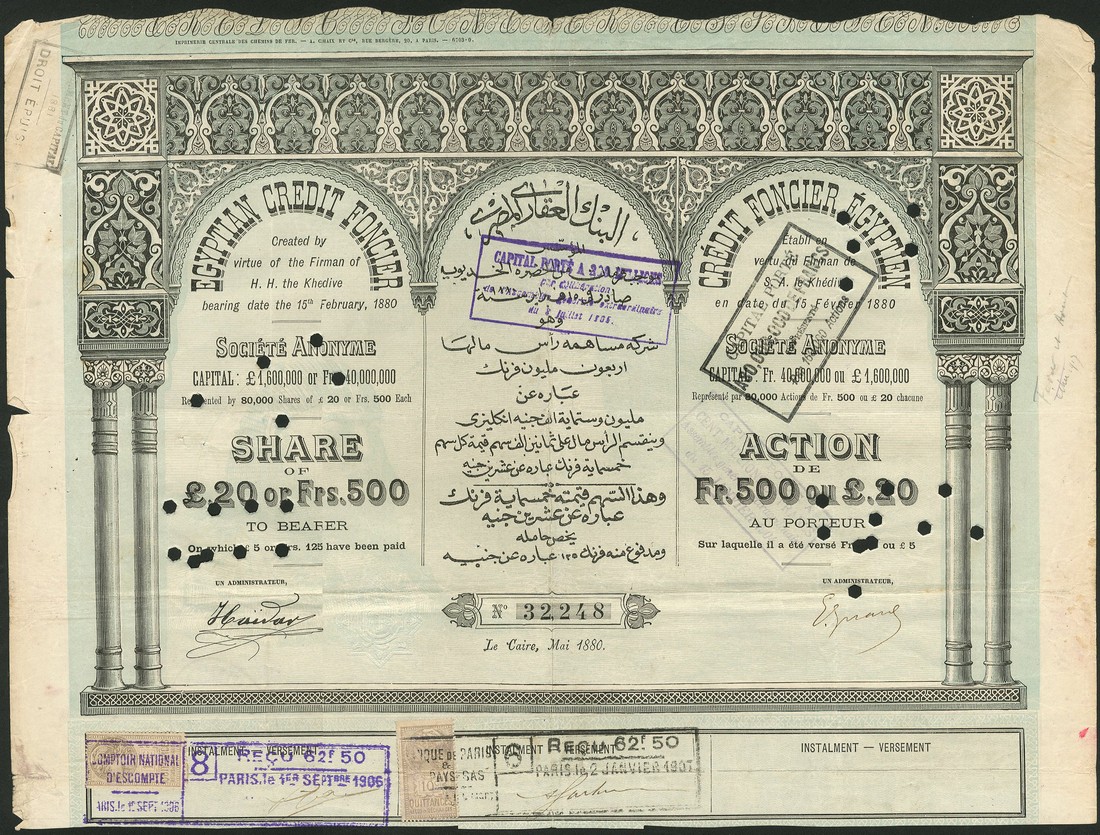 IMPRIMERIE CENTRALE DES CHEMINS DE FER. — A. CHAIX ET Cie, RUE BERGÈRE, 20, A PARIS. — 6703-0.
DROIT ÉPUISÉ
EGYPTIAN CREDIT FONCIER
Created by
virtue of the Firman of
H. H. the Khedive
bearing date the 15th February, 1880
SOCIÉTÉ ANONYME
CAPITAL: £ 1,600,000 or Fr. 40,000,000
Represented by 80,000 Shares of £ 20 or Frs. 500 Each
SHARE
OF
£.20 or Frs.500
TO BEARER
On which £ 5 or Frs. 125 have been paid
UN ADMINISTRATEUR,
Haïdar
البنك العقاري المصري
CAPITAL PORTÉ A
par délibération
de l'Assemblée générale extraordinaire
du Juillet 1905.
وهو
شركة مساهمه رأس مالها
اربعون مليون فرنك
عبارة عن
مليون وستماية الف جنيه انكليزي
وينقسم الرأس مال على ثمانين الف سهم قيمة كل سهم
خمسماية فرنك عباره عن عشرين جنيه
وهذا السهم قيمته خمسماية فرنك
عبارة عن عشرين جنيه
يخص حامله
ومدفوع منه فرنك ١٢٥ عباره عن جنيه
No 32,248
Le Caire, Mai 1880.
CRÉDIT FONCIER ÉGYPTIEN
Établi en
vertu du Firman de
S. A. le Khédive
en date du 15 Février 1880
CAPITAL PORTÉ
SOCIÉTÉ ANONYME
CAPITAL: Fr. 40,000,000 ou £ 1,600,000
Représenté par 80,000 Actions de Fr. 500 ou £ 20 chacune
ACTION
DE
Fr. 500 ou £.20
AU PORTEUR
Sur laquelle il a été versé Fr. ou £ 5
UN ADMINISTRATEUR,
INSTALMENT — VERSEMENT
COMPTOIR NATIONAL
D'ESCOMPTE
PARIS.le 1e SEPT 1906
8
REÇU 62f 50
PARIS.le 1ER SEPTBRE 1906
INSTALMENT — VERSEMENT
BANQUE DE PARIS
&
PAYS-BAS
REÇU 62f 50
PARIS le 2 JANVIER 1907
INSTALMENT — VERSEMENT